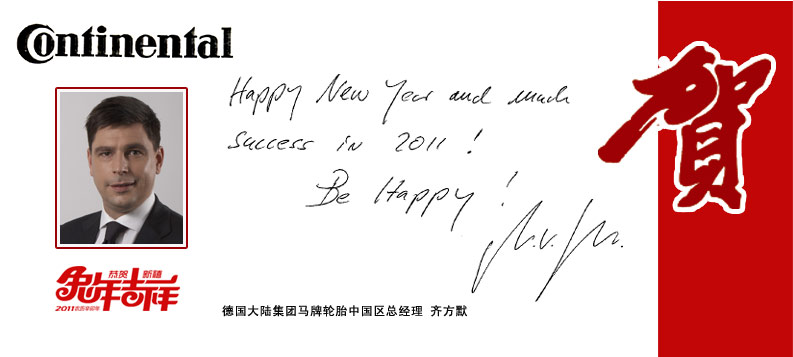 Continental
Happy New Year and much
success in 2011 !
Be Happy !
贺
恭贺 新禧
兔年吉祥
2011
德国大陆集团马牌轮胎中国区总经理 齐方默